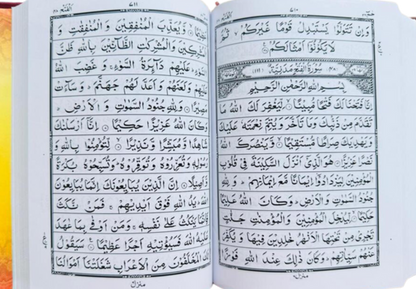 ۷۱۰
وَاِنْ تَتَوَلَّوْا يَسْتَبْدِلْ قَوْمًا غَيْرَكُمْ ۙ ثُمَّ
لَا يَكُوْنُوْۤا اَمْثَالَكُمْ
سُوْرَةُ الْفَتْحِ مَدَنِيَّةٌ
بِسْمِ اللهِ الرَّحْمٰنِ الرَّحِيْمِ
اِنَّا فَتَحْنَا لَكَ فَتْحًا مُّبِيْنًا ۙ لِّيَغْفِرَ لَكَ اللهُ مَا
تَقَدَّمَ مِنْ ذَنْۢبِكَ وَمَا تَاَخَّرَ وَيُتِمَّ نِعْمَتَهٗ عَلَيْكَ
وَيَهْدِيَكَ صِرَاطًا مُّسْتَقِيْمًا ۙ وَّيَنْصُرَكَ اللهُ
نَصْرًا عَزِيْزًا هُوَ الَّذِيْۤ اَنْزَلَ السَّكِيْنَةَ فِيْ قُلُوْبِ
الْمُؤْمِنِيْنَ لِيَزْدَادُوْۤا اِيْمَانًا مَّعَ اِيْمَانِهِمْ ؕ وَلِلّٰهِ
جُنُوْدُ السَّمٰوٰتِ وَالْاَرْضِ ؕ وَكَانَ اللهُ عَلِيْمًا
حَكِيْمًا ۙ لِّيُدْخِلَ الْمُؤْمِنِيْنَ وَالْمُؤْمِنٰتِ جَنّٰتٍ
تَجْرِيْ مِنْ تَحْتِهَا الْاَنْهٰرُ خٰلِدِيْنَ فِيْهَا وَيُكَفِّرَ
عَنْهُمْ سَيِّاٰتِهِمْ ؕ وَكَانَ ذٰلِكَ عِنْدَ اللهِ فَوْزًا
۷۱۱
عَظِيْمًا ۙ وَّيُعَذِّبَ الْمُنٰفِقِيْنَ وَالْمُنٰفِقٰتِ وَ
الْمُشْرِكِيْنَ وَالْمُشْرِكٰتِ الظَّآنِّيْنَ بِاللهِ ظَنَّ
السَّوْءِ ؕ عَلَيْهِمْ دَآئِرَةُ السَّوْءِ ۚ وَغَضِبَ اللهُ
عَلَيْهِمْ وَلَعَنَهُمْ وَاَعَدَّ لَهُمْ جَهَنَّمَ ؕ وَسَآءَتْ
مَصِيْرًا وَلِلّٰهِ جُنُوْدُ السَّمٰوٰتِ وَالْاَرْضِ ؕ
وَكَانَ اللهُ عَزِيْزًا حَكِيْمًا اِنَّاۤ اَرْسَلْنٰكَ
شَاهِدًا وَّمُبَشِّرًا وَّنَذِيْرًا ۙ لِّتُؤْمِنُوْا بِاللهِ وَ
رَسُوْلِهٖ وَتُعَزِّرُوْهُ وَتُوَقِّرُوْهُ ؕ وَتُسَبِّحُوْهُ بُكْرَةً
وَّاَصِيْلًا اِنَّ الَّذِيْنَ يُبَايِعُوْنَكَ اِنَّمَا يُبَايِعُوْنَ
اللهَ ؕ يَدُ اللهِ فَوْقَ اَيْدِيْهِمْ ۚ فَمَنْ نَّكَثَ
فَاِنَّمَا يَنْكُثُ عَلٰى نَفْسِهٖ ۚ وَمَنْ اَوْفٰى بِمَا عٰهَدَ
عَلَيْهُ اللهَ فَسَيُؤْتِيْهِ اَجْرًا عَظِيْمًا سَيَقُوْلُ
لَكَ الْمُخَلَّفُوْنَ مِنَ الْاَعْرَابِ شَغَلَتْنَاۤ اَمْوَالُنَا